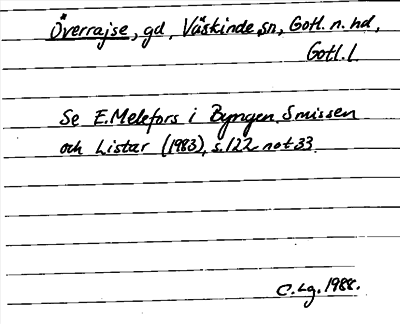 Överrajse, gd, Väskinde sn, Gotl. n. hd,
Gotl. l.
Se E. Melefors i Byngen, Smissen
och Listar (1983), s. 122 not 33.
C. Lg. 1988.